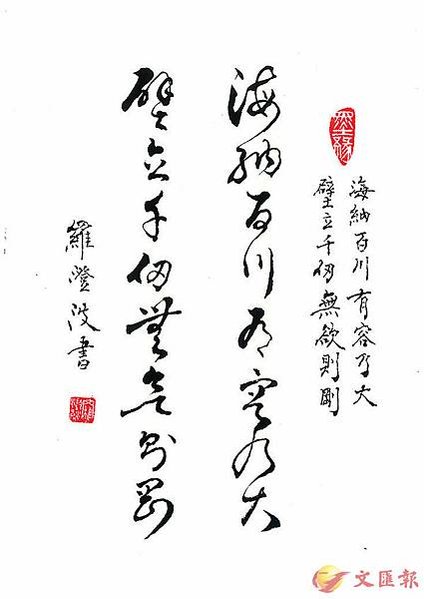 海納百川有容乃大
壁立千仞無欲則剛
海納百川有容乃大
壁立千仞無欲則剛
羅澄波書
文匯報